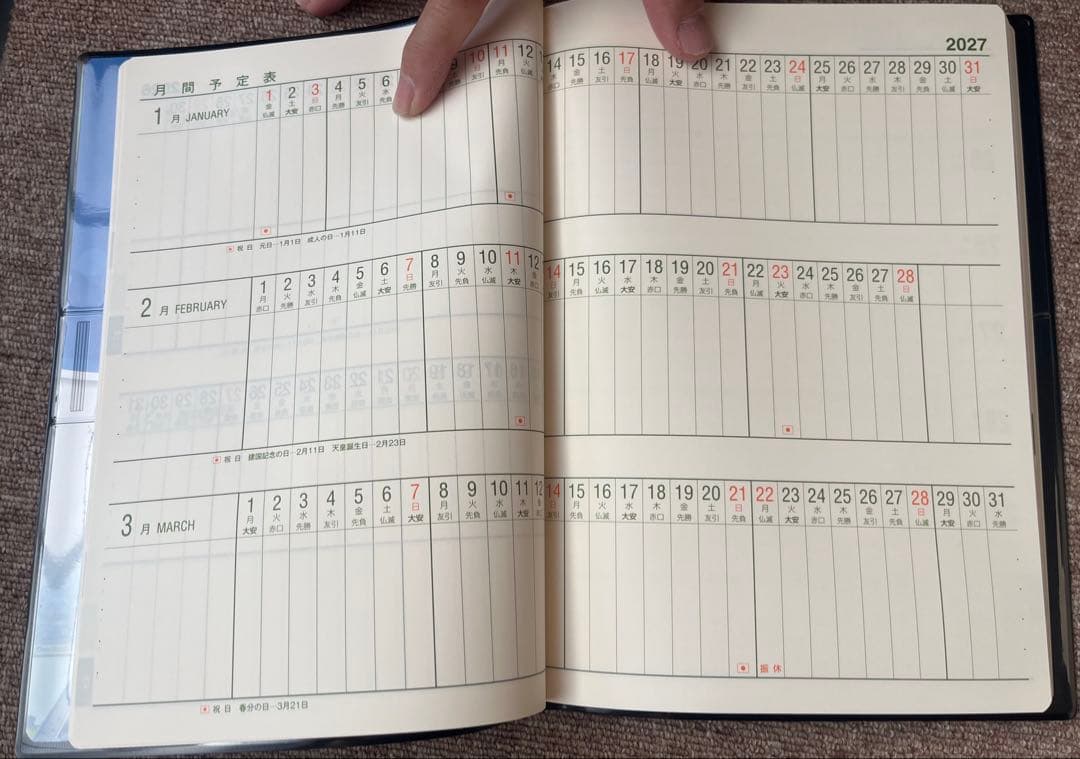 2027
月間予定表
1月 JANUARY
1 2 3 4 5 6 9 10 11 12 14 15 16 17 18 19 20 21 22 23 24 25 26 27 28 29 30 31
金 土 日 月 火 水 月 火 金 土 日 月 火 水 木 金 土 日 月 火 水 木 金 土 日
仏滅 大安 赤口 先勝 友引 先負 友引 先負 仏滅
祝日 元日…1月1日 成人の日…1月11日
2月 FEBRUARY
1 2 3 4 5 6 7 8 9 10 11 12 14 15 16 17 18 19 20 21 22 23 24 25 26 27 28
月 火 水 木 金 土 日 月 火 水 木 金 日 月 火 水 木 金 土 日 月 火 水 木 金 土 日
赤口 先勝 友引 先負 仏滅 大安 赤口 友引 先負 仏滅 大安 赤口 友引 先負 仏滅 大安 赤口 先勝 友引 先負 仏滅 大安 赤口 先勝 友引 先負 仏滅
祝日 建国記念の日…2月11日 天皇誕生日…2月23日
3月 MARCH
1 2 3 4 5 6 7 8 9 10 11 12 14 15 16 17 18 19 20 21 22 23 24 25 26 27 28 29 30 31
月 火 水 木 金 土 日 月 火 水 木 金 日 月 火 水 木 金 土 日 月 火 水 木 金 土 日 月 火 水
大安 赤口 先勝 友引 先負 仏滅 大安 友引 先負 仏滅 大安 赤口 友引 先負 仏滅 大安 赤口 先勝 友引 先負 仏滅 大安 赤口 先勝 友引 先負 仏滅 大安 赤口 先勝
振休
祝日 春分の日…3月21日